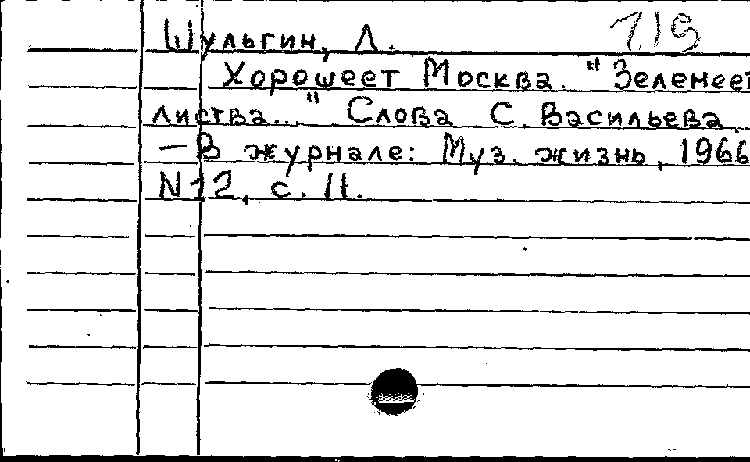 Шульгин, Л.
Хорошеет Москва. "Зеленеет
листва..." Слова С. Васильева
— В журнале: Муз. жизнь, 1966
N12, с. 11.